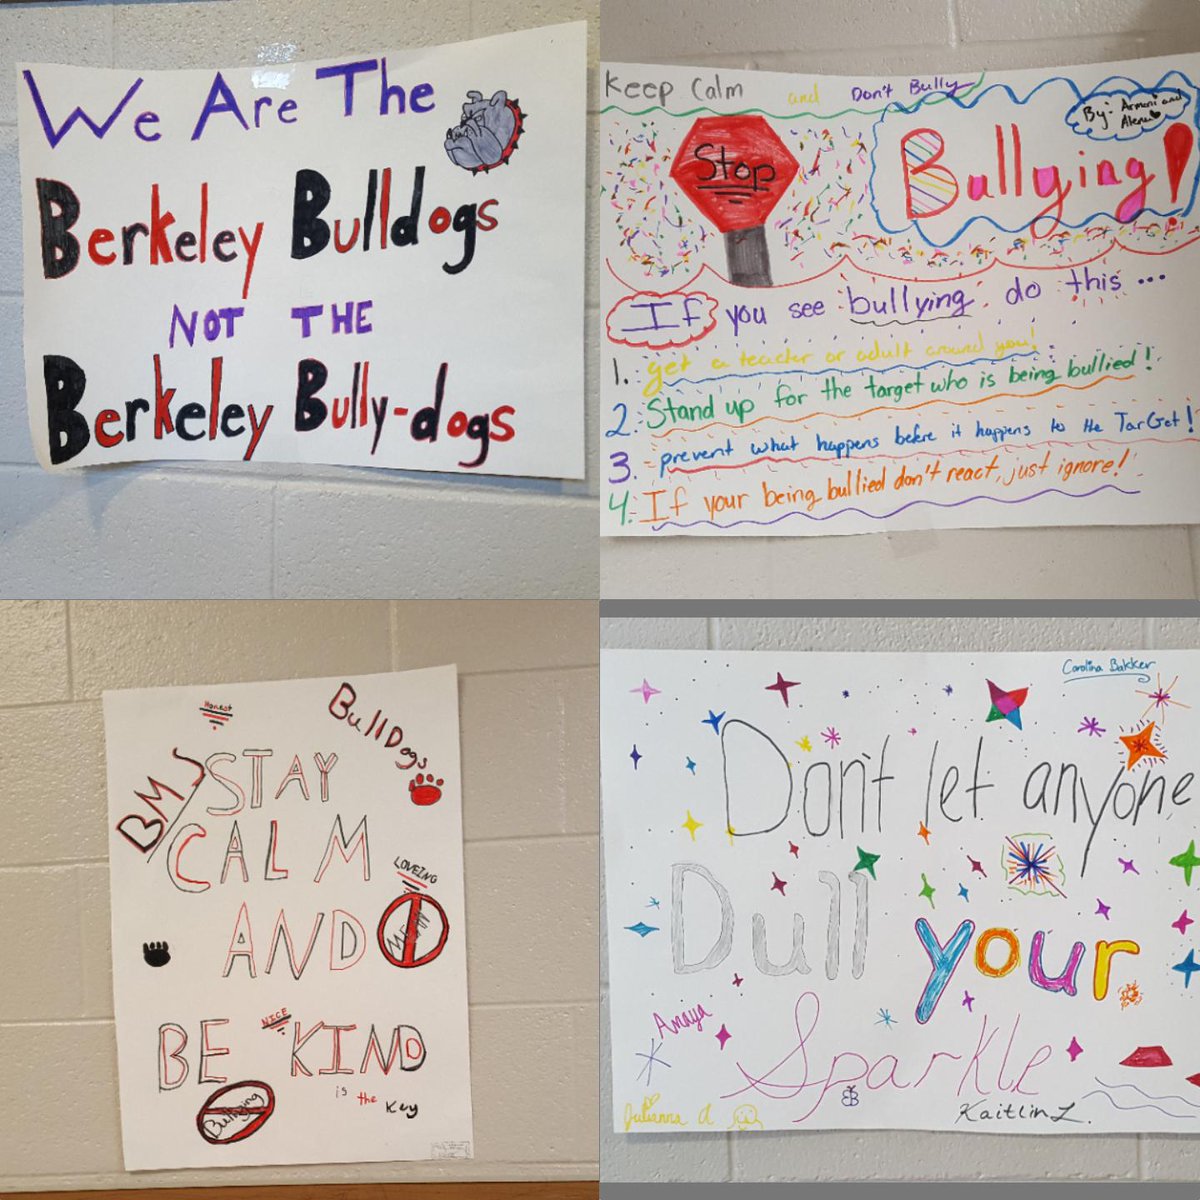 We Are The
Berkeley Bulldogs
NOT THE
Berkeley Bully-dogs
Keep Calm and Don't Bully
By: Armani and
Stop
Bullying!
If you see bullying do this...
1. get a teacher or adult around you!
2. Stand up for the target who is being bullied!
3. prevent what happens before it happens to the TarGet!
4. If your being bullied don't react, just ignore!
Honest
BullDogs
BMS
STAY
CALM
LOVEING
AND
MEAN
NICE
BE KIND
is the Key
Bullying
Carolina Bakker
Don't let anyone
Dull your
Amaya
Sparkle
Julianna A
Kaitlin L.